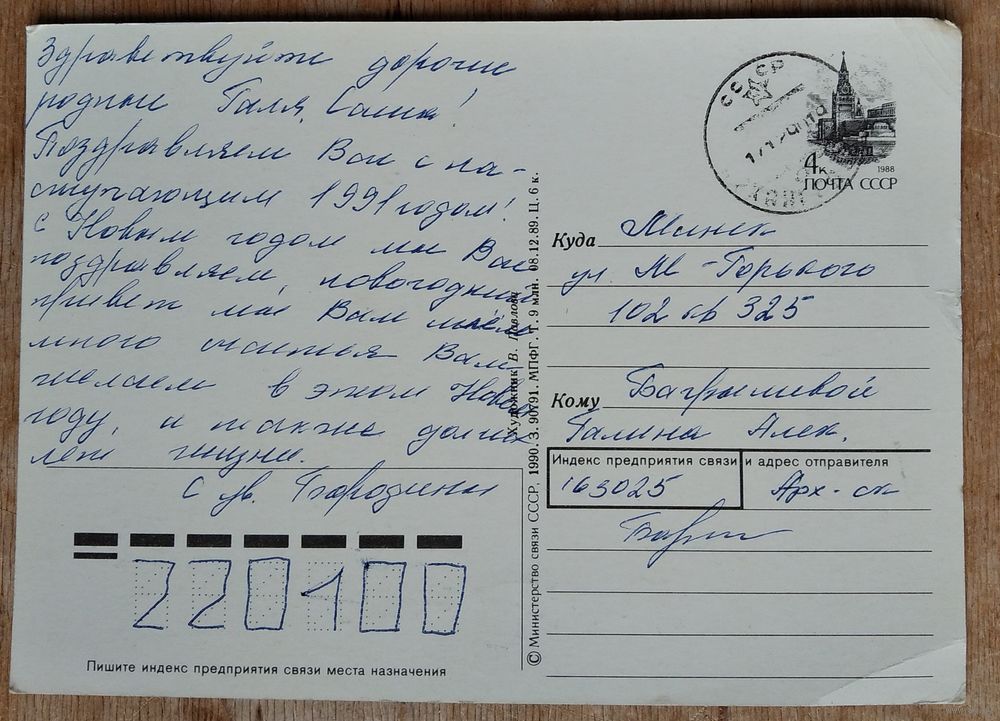 Здравствуйте дорогие
родные Галя, Саша!
Поздравляем Вас с на-
ступающим 1991 годом!
С Новым годом мы Вас
поздравляем, новогодний
привет мы Вам шлём
много счастья Вам
желаем в этом Новом
году, а также долгих
лет жизни.
С ув. Бородины
Пишите индекс предприятия связи места назначения
220100
© Министерство связи СССР, 1990. З. 90791. МПФГ. Т. 9 млн. 08.12.89. Ц. 6 к.
Художник В. Павлова
СССР
4к
1988
ПОЧТА СССР
Куда Минск
ул. М-Горького
102 кв 325
Кому
Галина Алек.
Индекс предприятия связи и адрес отправителя
163025 Арх-ск